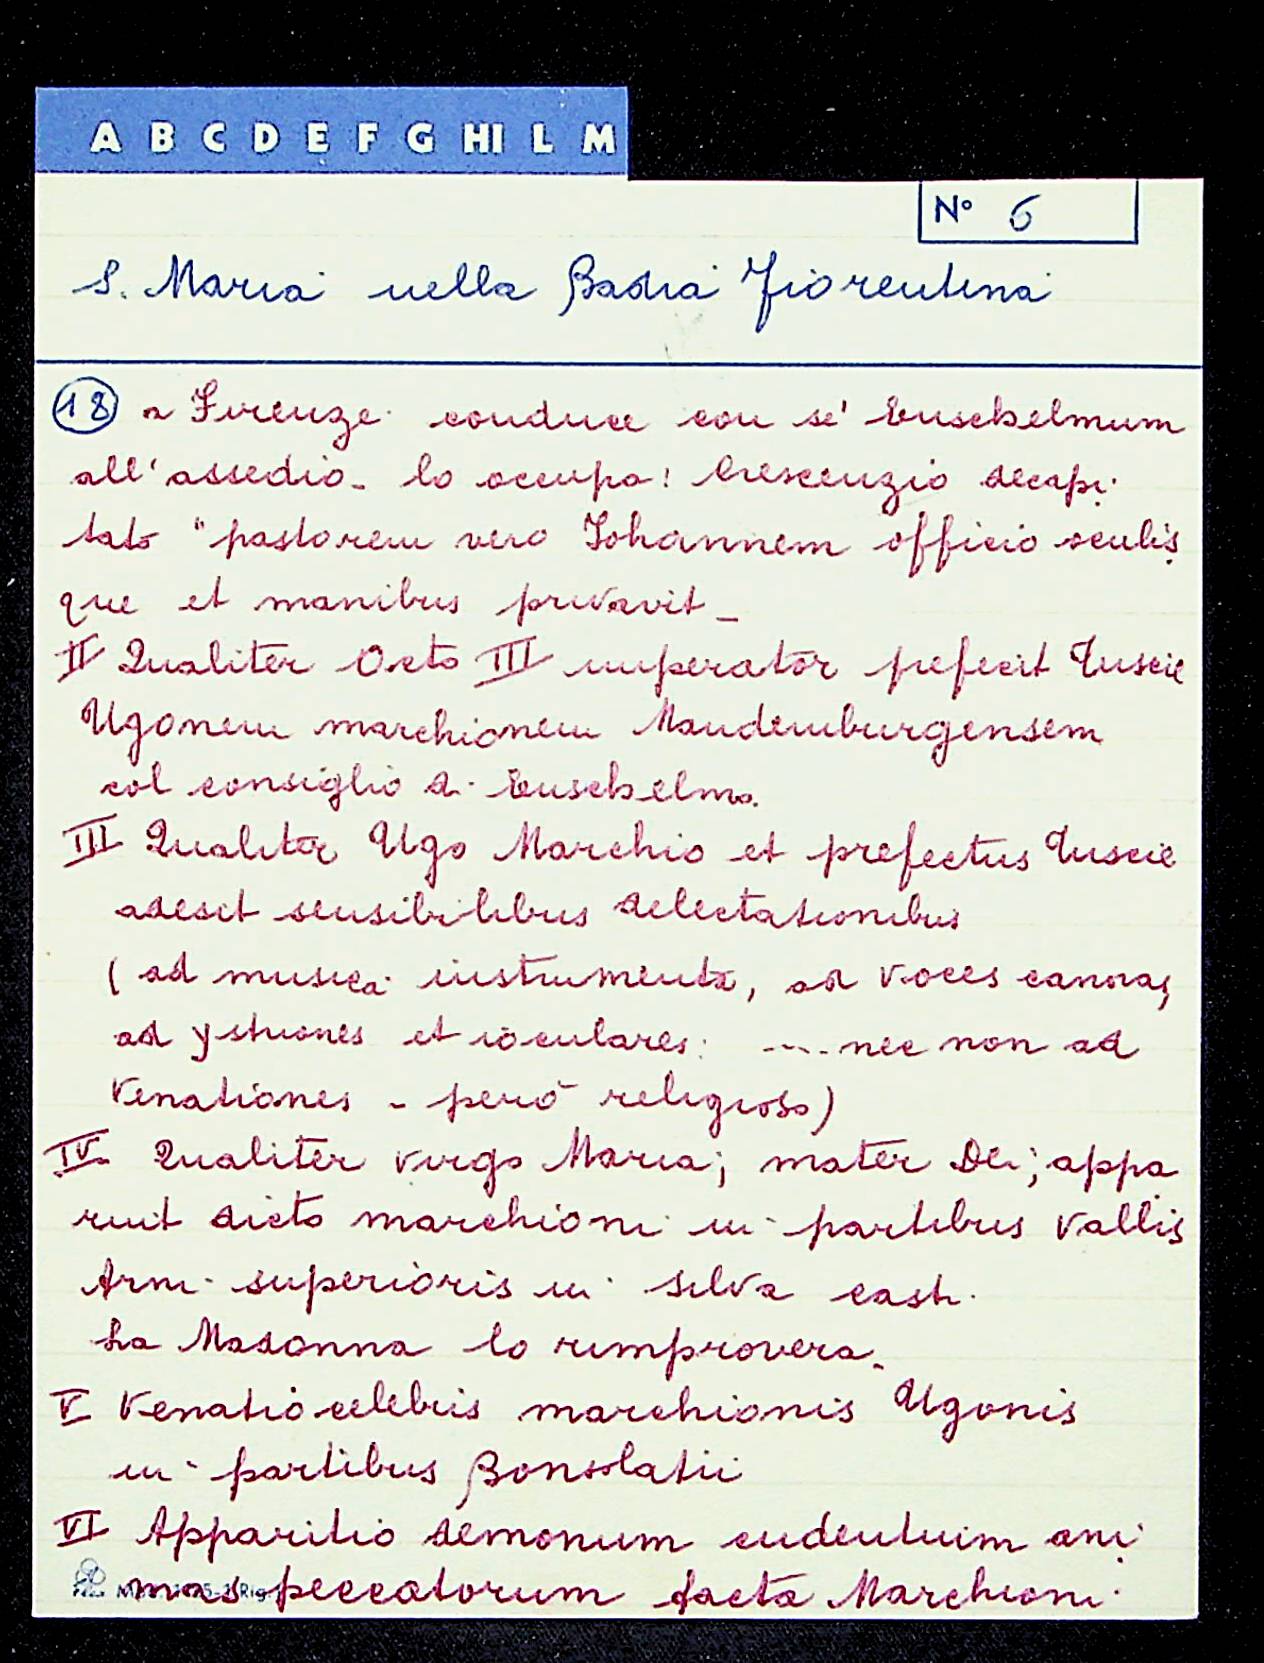 A B C D E F G HI L M
N° 6
S. Maria nella Badia Fiorentina
18 a Firenze conduce con se'
all'assedio - lo occupa: Crescenzio decapi
tato "pastorem vero Iohannem officio oculis
que et manibus privavit -
II Qualiter Octo III imperator prefecit Tuscie
Ugonem marchionem Mandemburgensem
col consiglio di
III Qualiter Ugo Marchio et prefectus Tuscie
adesit sensibilibus delectationibus
( ad musica instrumenta, ad voces canoras,
ad ystriones et ioculares: .... nec non ad
venationes - però religioso)
IV. Qualiter virgo Maria; mater Dei; appa
ruit dicto marchioni in partibus Vallis
Arni superioris in silva casti.
La Madonna lo rimprovera.
V Venatio celebris marchionis Ugonis
in partibus Bonsolatii
VI Apparitio demonum cudentuim ani
mas peccatorum facta Marchioni.